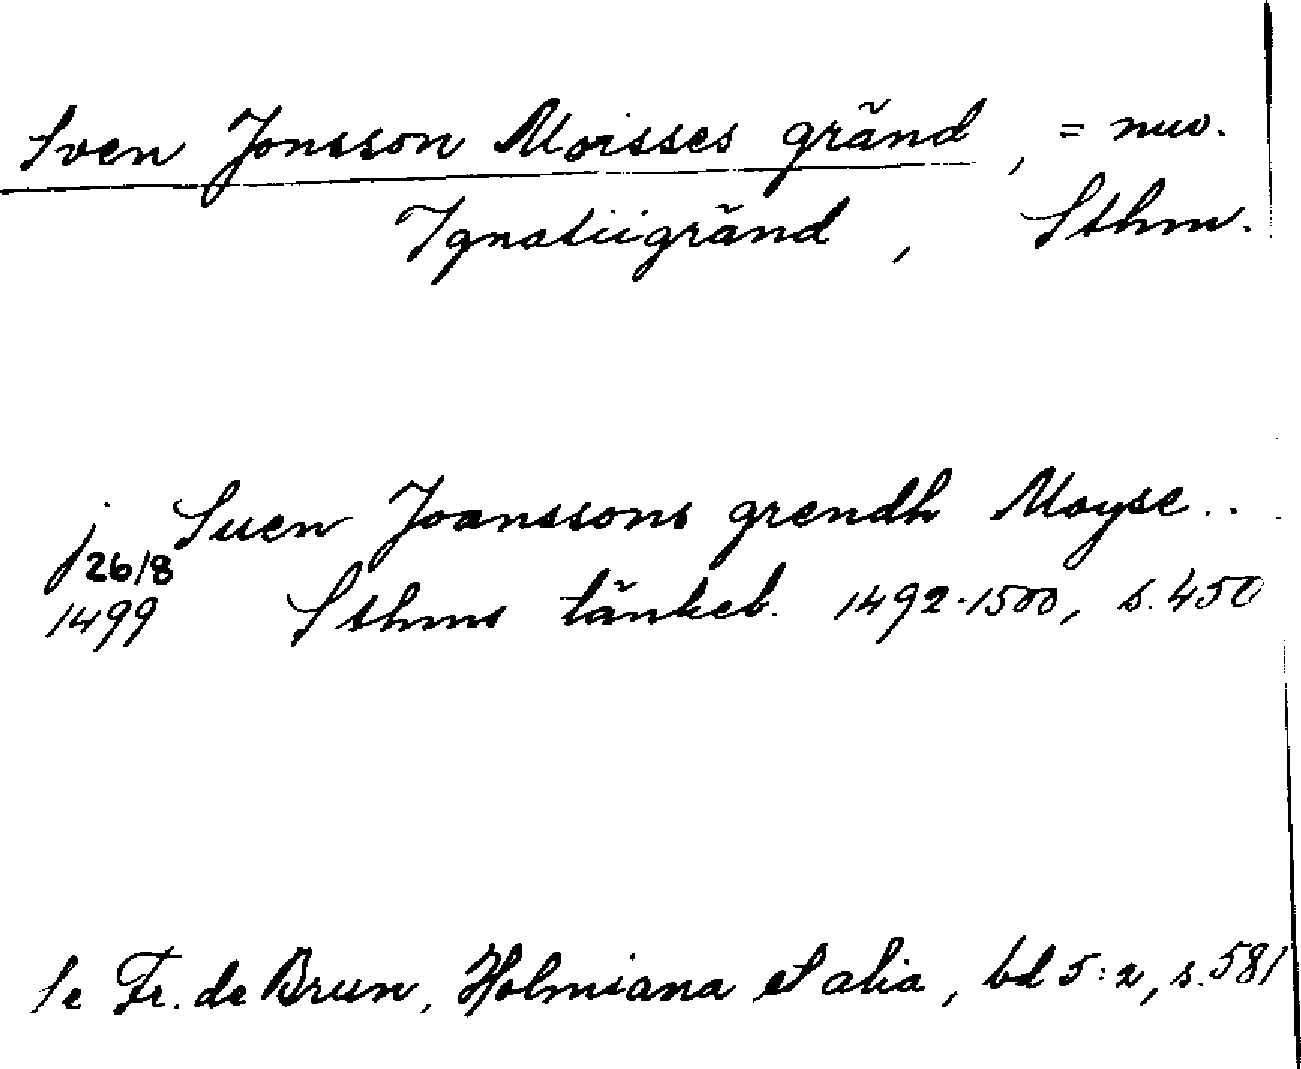 Sven Jonsson Moisses gränd, = nuv.
Ignatiigränd, Sthm.
j Suen Joanssons grendh Moyse..
26/8
1499 Sthms tänkeb. 1492-1500, s. 450
Se Fr. de Brun, Holmiana et alia, bd 5:2, s. 581